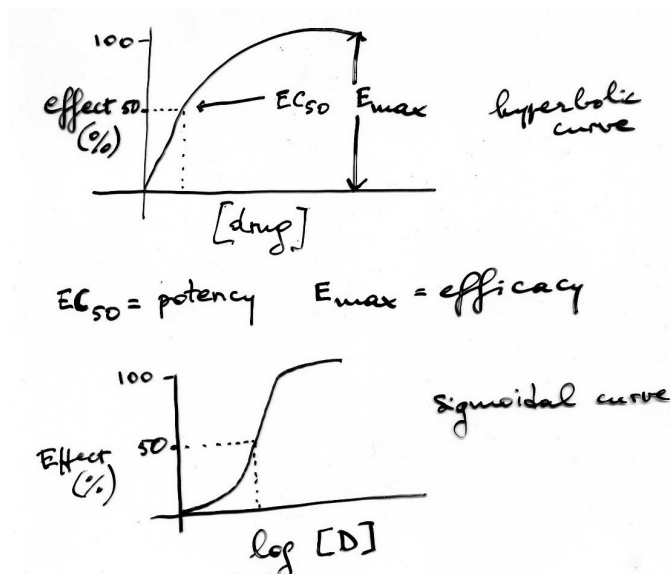 100
effect 50
(%)
EC50
Emax
hyperbolic
curve
[drug]
EC50 = potency Emax = efficacy
100
sigmoidal curve
50
Effect
(%)
log [D]